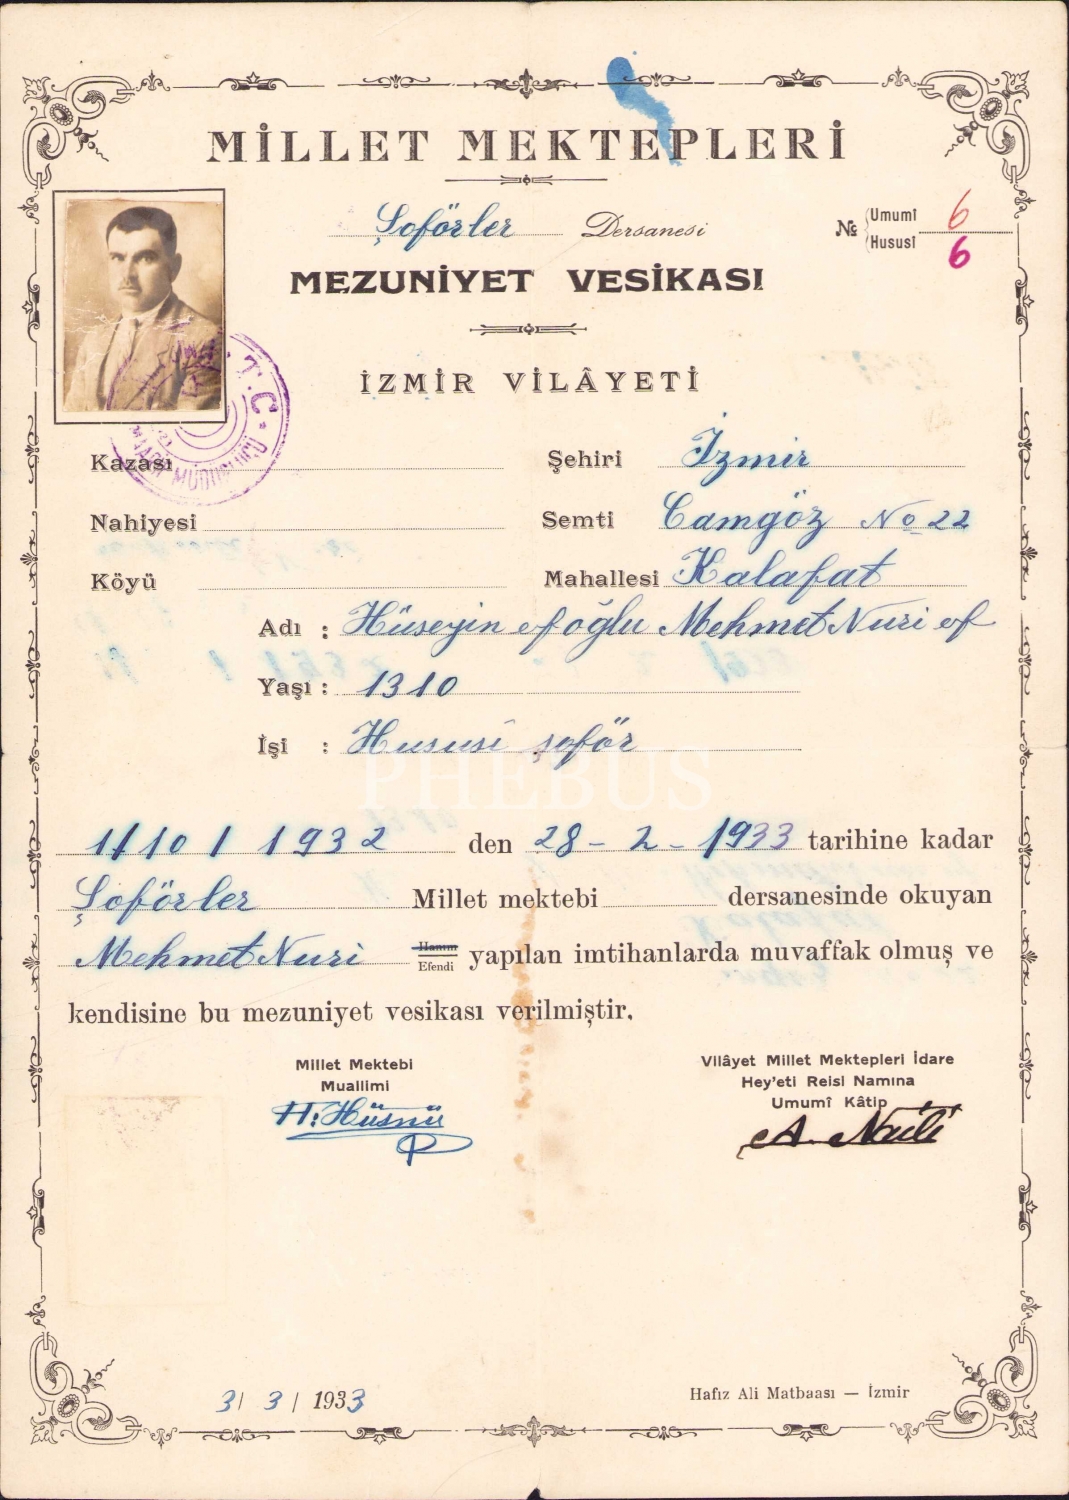 MİLLET MEKTEPLERİ
Şoförler Dersanesi
№ Umumî 6
Hususî 6
MEZUNİYET VESİKASI
İZMİR VİLÂYETİ
T.C.
MAARİF MÜDÜRLÜĞÜ
Kazası Şehiri İzmir
Nahiyesi Semti Camgöz No 22
Köyü Mahallesi Kalafat
Adı : Hüseyin ef oğlu Mehmet Nuri ef
Yaşı : 1310
İşi : Hususî şoför
PHEBUS
1/10 / 1932 den 28 - 2 - 1933 tarihine kadar
Şoförler Millet mektebi dersanesinde okuyan
Mehmet Nuri Hanım Efendi yapılan imtihanlarda muvaffak olmuş ve
kendisine bu mezuniyet vesikası verilmiştir.
Millet Mektebi
Muallimi
H. Hüsnü
Vilâyet Millet Mektepleri İdare
Hey'eti Reisi Namına
Umumî Kâtip
A. Naili
3 / 3 / 1933
Hafız Ali Matbaası — İzmir